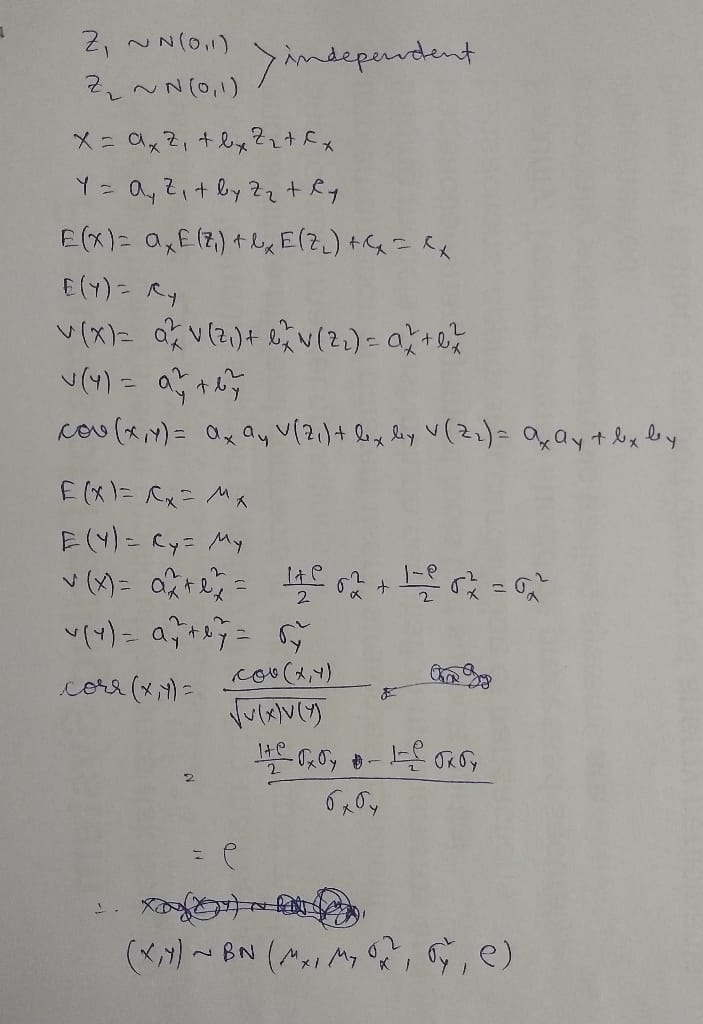 Z₁ ~ N(0,1)
Z₂ ~ N(0,1) > independent
X = aₓZ₁ + bₓZ₂ + cₓ
Y = a_y Z₁ + b_y Z₂ + c_y
E(X) = aₓE(Z₁) + bₓE(Z₂) + cₓ = cₓ
E(Y) = c_y
V(X) = aₓ² V(Z₁) + bₓ² V(Z₂) = aₓ² + bₓ²
V(Y) = a_y² + b_y²
cov(X,Y) = aₓ a_y V(Z₁) + bₓ b_y V(Z₂) = aₓ a_y + bₓ b_y
E(X) = cₓ = μₓ
E(Y) = c_y = μ_y
V(X) = aₓ² + bₓ² = (1+ρ)/2 σₓ² + (1-ρ)/2 σₓ² = σₓ²
V(Y) = a_y² + b_y² = σ_y²
corr(X,Y) = cov(X,Y) / √V(X)V(Y)
= ((1+ρ)/2 σₓσ_y - (1-ρ)/2 σₓσ_y) / σₓσ_y
= ρ
∴
(X,Y) ~ BN (μₓ, μ_y σₓ², σ_y², ρ)